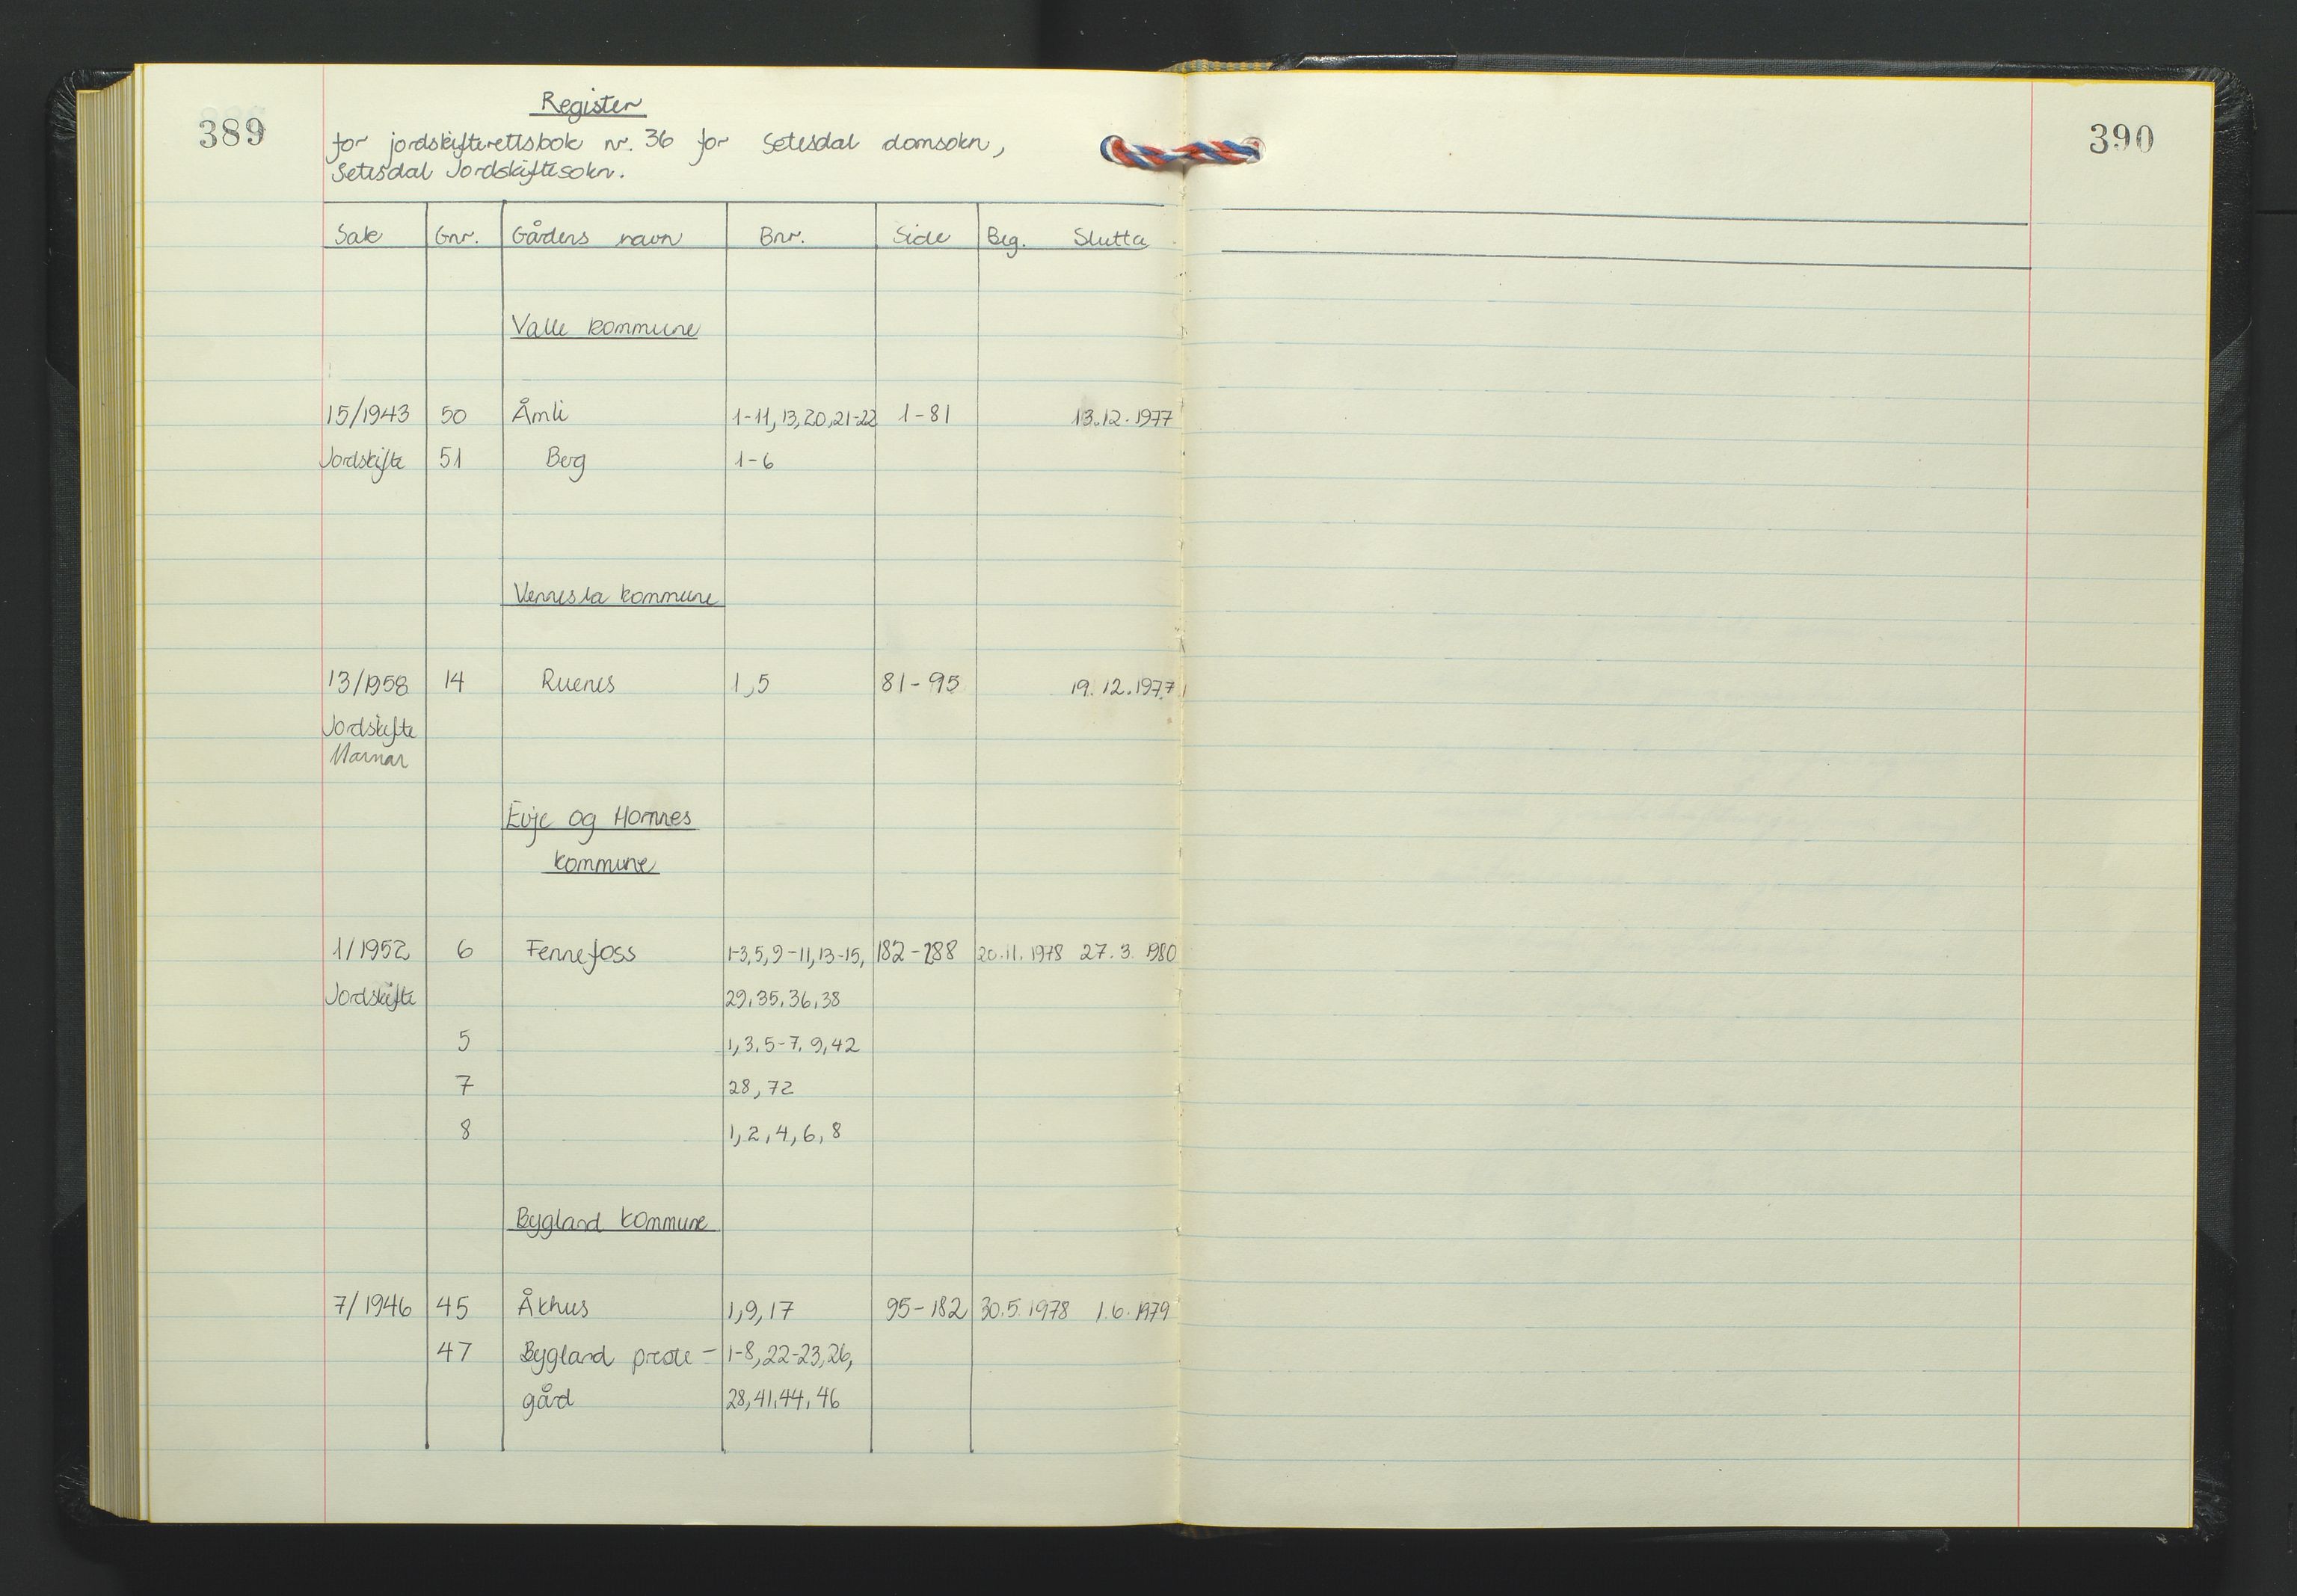 389
Register
for jordskifterettsbok nr. 36 for Setesdal domsokn,
Setesdal Jordskiftesokn.
Sak Gnr. Gårdens navn Bnr. Side Beg. Slutta
Valle kommune
15/1943 50 Åmli 1-11, 13, 20, 21-22 1-81 13.12.1977
Jordskifte 51 Berg 1-6
Vennesla kommune
13/1958 14 Ruenes 1,5 81-95 19.12.1977
Jordskifte
Marnar
Evje og Hornnes
kommune
1/1952 6 Fennefoss 1-3,5,9-11,13-15, 182-288 20.11.1978 27.3.1980
Jordskifte 29,35,36,38
5 1,3,5-7,9,42
7 28,72
8 1,2,4,6,8
Bygland kommune
7/1946 45 Åkhus 1,9,17 95-182 30.5.1978 1.6.1979
47 Bygland preste- 1-8,22-23,26,
gård 28,41,44,46
390